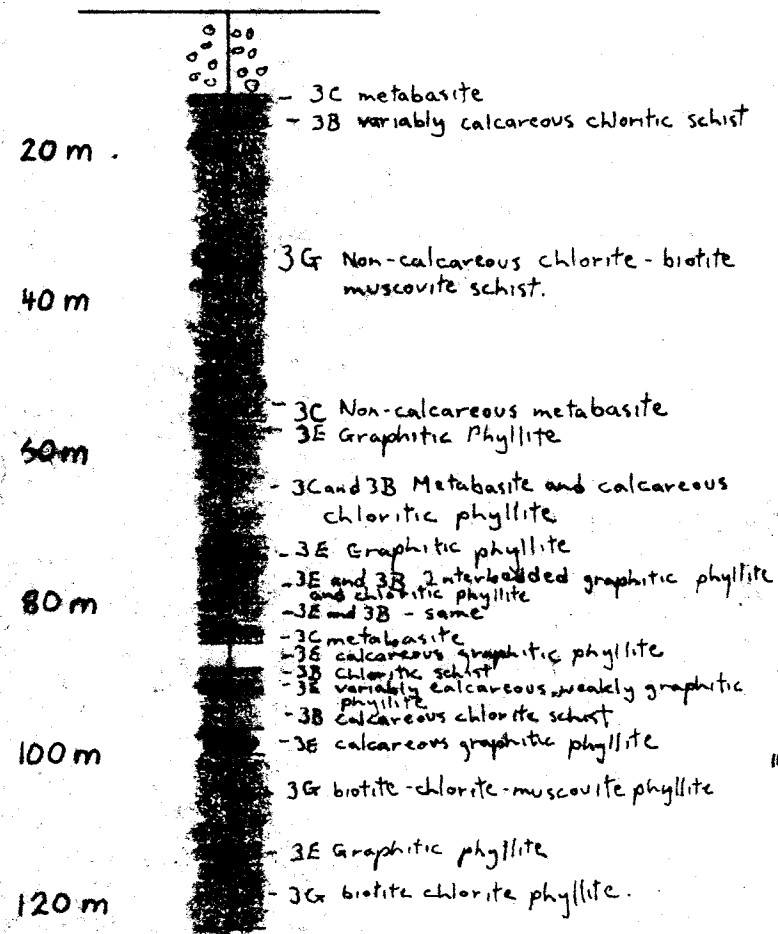 3C metabasite
3B variably calcareous chloritic schist
20 m
3G Non-calcareous chlorite - biotite
muscovite schist.
40 m
3C Non-calcareous metabasite
3E Graphitic Phyllite
60m
3C and 3B Metabasite and calcareous
chloritic phyllite
3E Graphitic phyllite
3E and 3B Interbedded graphitic phyllite
and chloritic phyllite
80 m
3E and 3B - same
3C metabasite
3E calcareous graphitic phyllite
3B Chloritic schist
3E variably calcareous, weakly graphitic
phyllite
3B calcareous chlorite schist
3E calcareous graphitic phyllite
100 m
3G biotite-chlorite-muscovite phyllite
3E Graphitic phyllite
3G biotite chlorite phyllite.
120 m